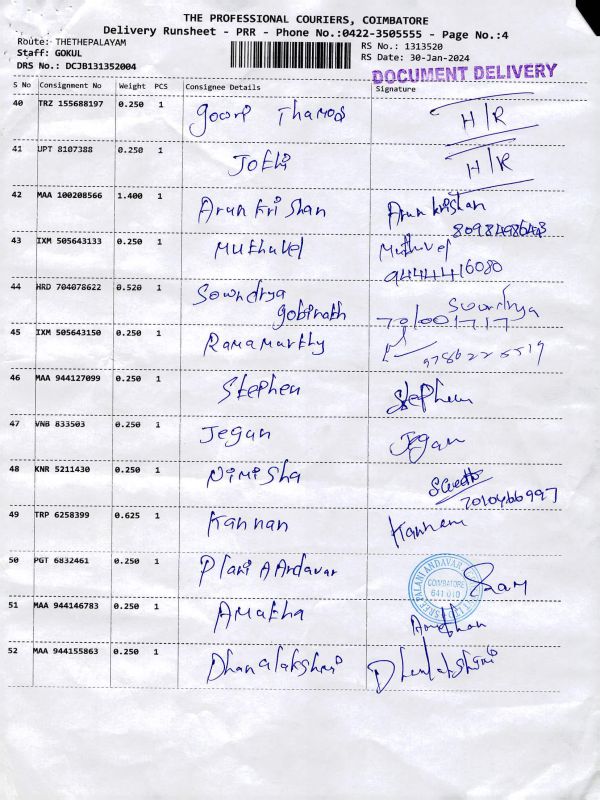 THE PROFESSIONAL COURIERS, COIMBATORE
Delivery Runsheet - PRR - Phone No.:0422-3505555 - Page No.:4
Route: THETHEPALAYAM RS No.: 1313520
Staff: GOKUL RS Date: 30-Jan-2024
DRS No.: DCJB131352004
DOCUMENT DELIVERY
S No Consignment No Weight PCS Consignee Details Signature
40 TRZ 155688197 0.250 1 H/R
41 UPT 8107388 0.250 1 Jothi H/R
42 MAA 100208566 1.400 1 Arun Kri Shan Arun Krishan
43 IXM 505643133 0.250 1 Muthuvel Muthuvel
9444416080
44 HRD 704078622 0.520 1 Sowndrya Sowndrya
gobinath
45 IXM 505643150 0.250 1 Ramamurthy
46 MAA 944127099 0.250 1 Stephen Stephen
47 VNB 833503 0.250 1 Jegan Jegan
48 KNR 5211430 0.250 1 Nimisha
49 TRP 6258399 0.625 1 Kannan
50 PGT 6832461 0.250 1 Plani A Andavar
SREE PALANI ANDAVAR
COIMBATORE
641 010
51 MAA 944146783 0.250 1
52 MAA 944155863 0.250 1 Dhanalakshmi